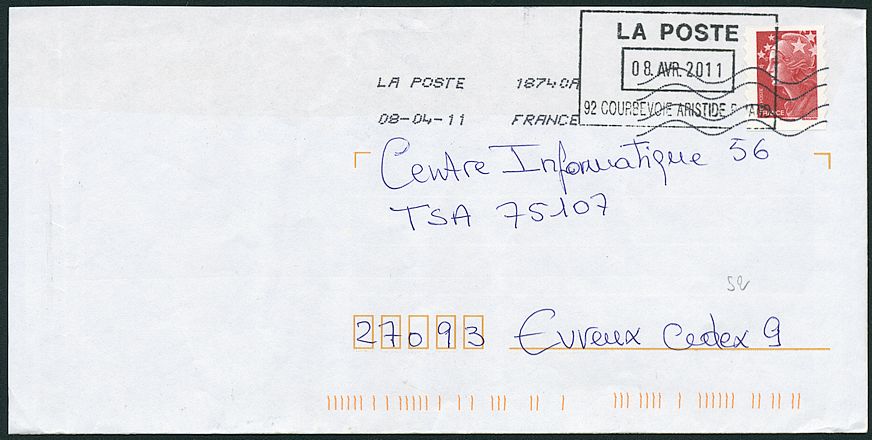 LA POSTE
08. AVR. 2011
92 COURBEVOIE ARISTIDE
LA POSTE 18740A
08-04-11 FRANCE
FRANCE
Centre Informatique 56
TSA 75107
27093 Evreux cedex 9